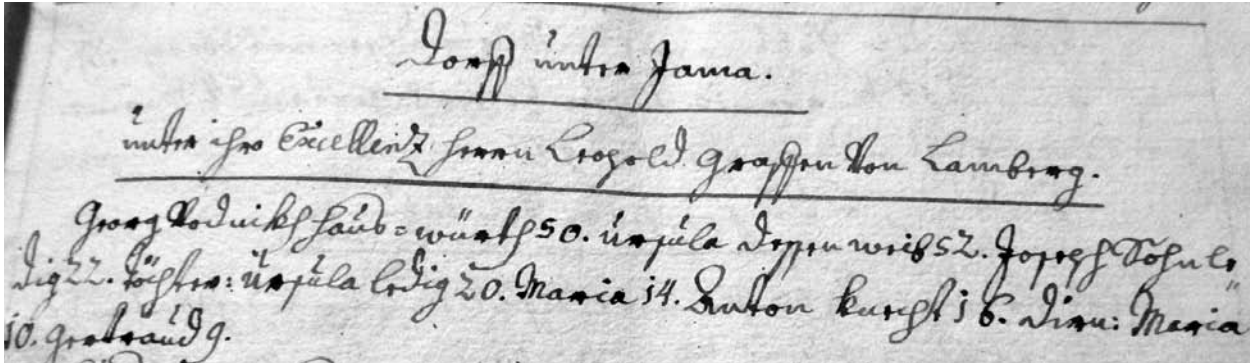 Dorff unter Jama.
unter ihro Excellentz Herrn Leopold Graffen Von Lamberg.
Georg Vodnikh haus=würth 50. Ursula dessen weib 52. Joseph Sohn le-
dig 22. Töchter: Ursula ledig 20. Maria 14. Anton knecht 16. dirn: Maria
10. Gertraud 9.